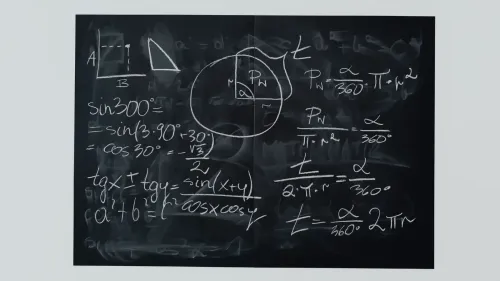 A
B
sin300°=
=sin(3·90°+30°)
=cos30°=-√3/2
tgx±tgy=sin(x+y)/cosxcosy
a²+b²=c²
t
r
P_W
α
r
P_W=α/360°·π·r²
P_W/π·r²=α/360°
t/2·π·r=α/360°
t=α/360° 2πr